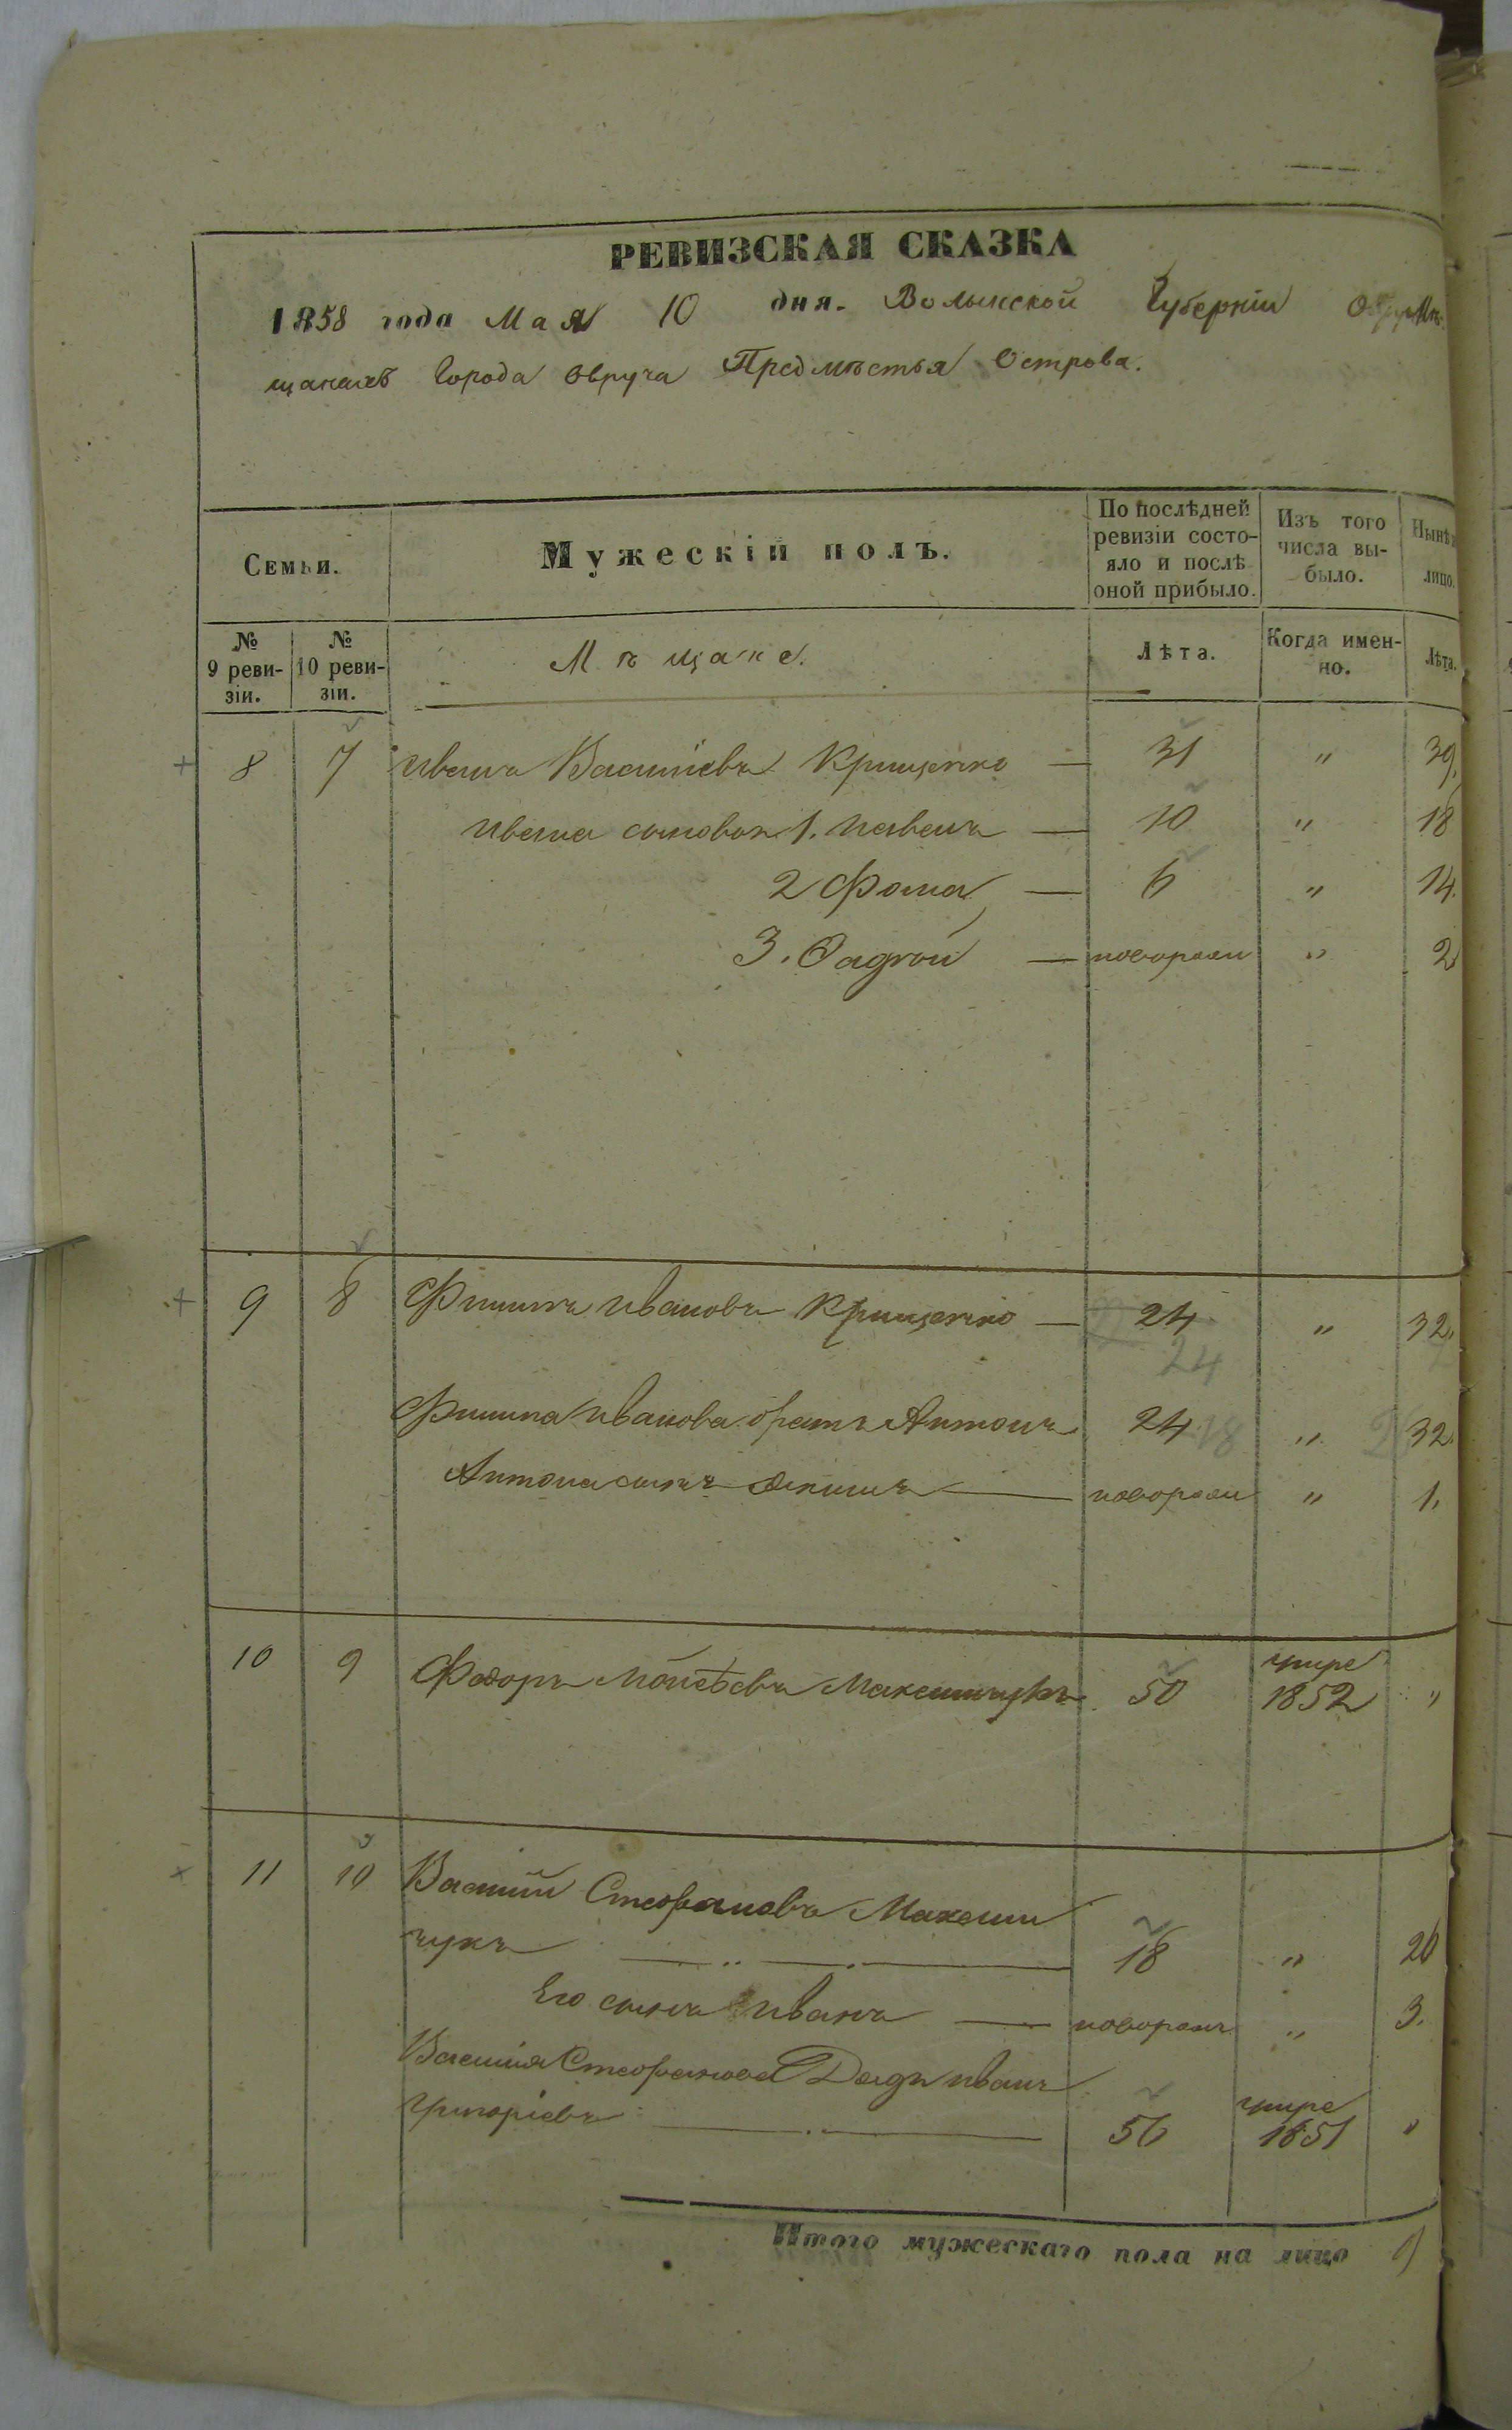 РЕВИЗСКАЯ СКАЗКА
1858 года Мая 10 дня. Волынской Губерніи о Мѣ-
щанахъ Города Овруча Предмѣстья Острова.
Семьи.
Мужескій полъ.
По послѣдней ревизіи состо-яло и послѣ оной прибыло.
Изъ того числа вы-было.
Нынѣ лицо.
№ 9 реви-зіи.
№ 10 реви-зіи.
Мѣщане.
Лѣта.
Когда имен-но.
Лѣта.
8 7 Иванъ Васильевъ Крищенко — 31 " 39.
Ивана сыновья 1. Павелъ — 10 " 18
2 Фома — 6 " 14.
3. — новорожен " 2
9 8 Филипъ Ивановъ Крищенко — 24 " 32.
24
Филипа Иванова братъ Антонъ 24 18 " 32.
Антона сынъ — новорожен " 1.
10 9 Федоръ Моисѣевъ Максимчукъ 50 умре 1852 "
11 10 Василій Стефановъ Максим
чукъ — 18 " 26
Его сынъ Иванъ — новорожен " 3.
Василія Стефанова Дядя Иванъ
Григоріевъ — 56 умре 1851 "
Итого мужескаго пола на лицо 9